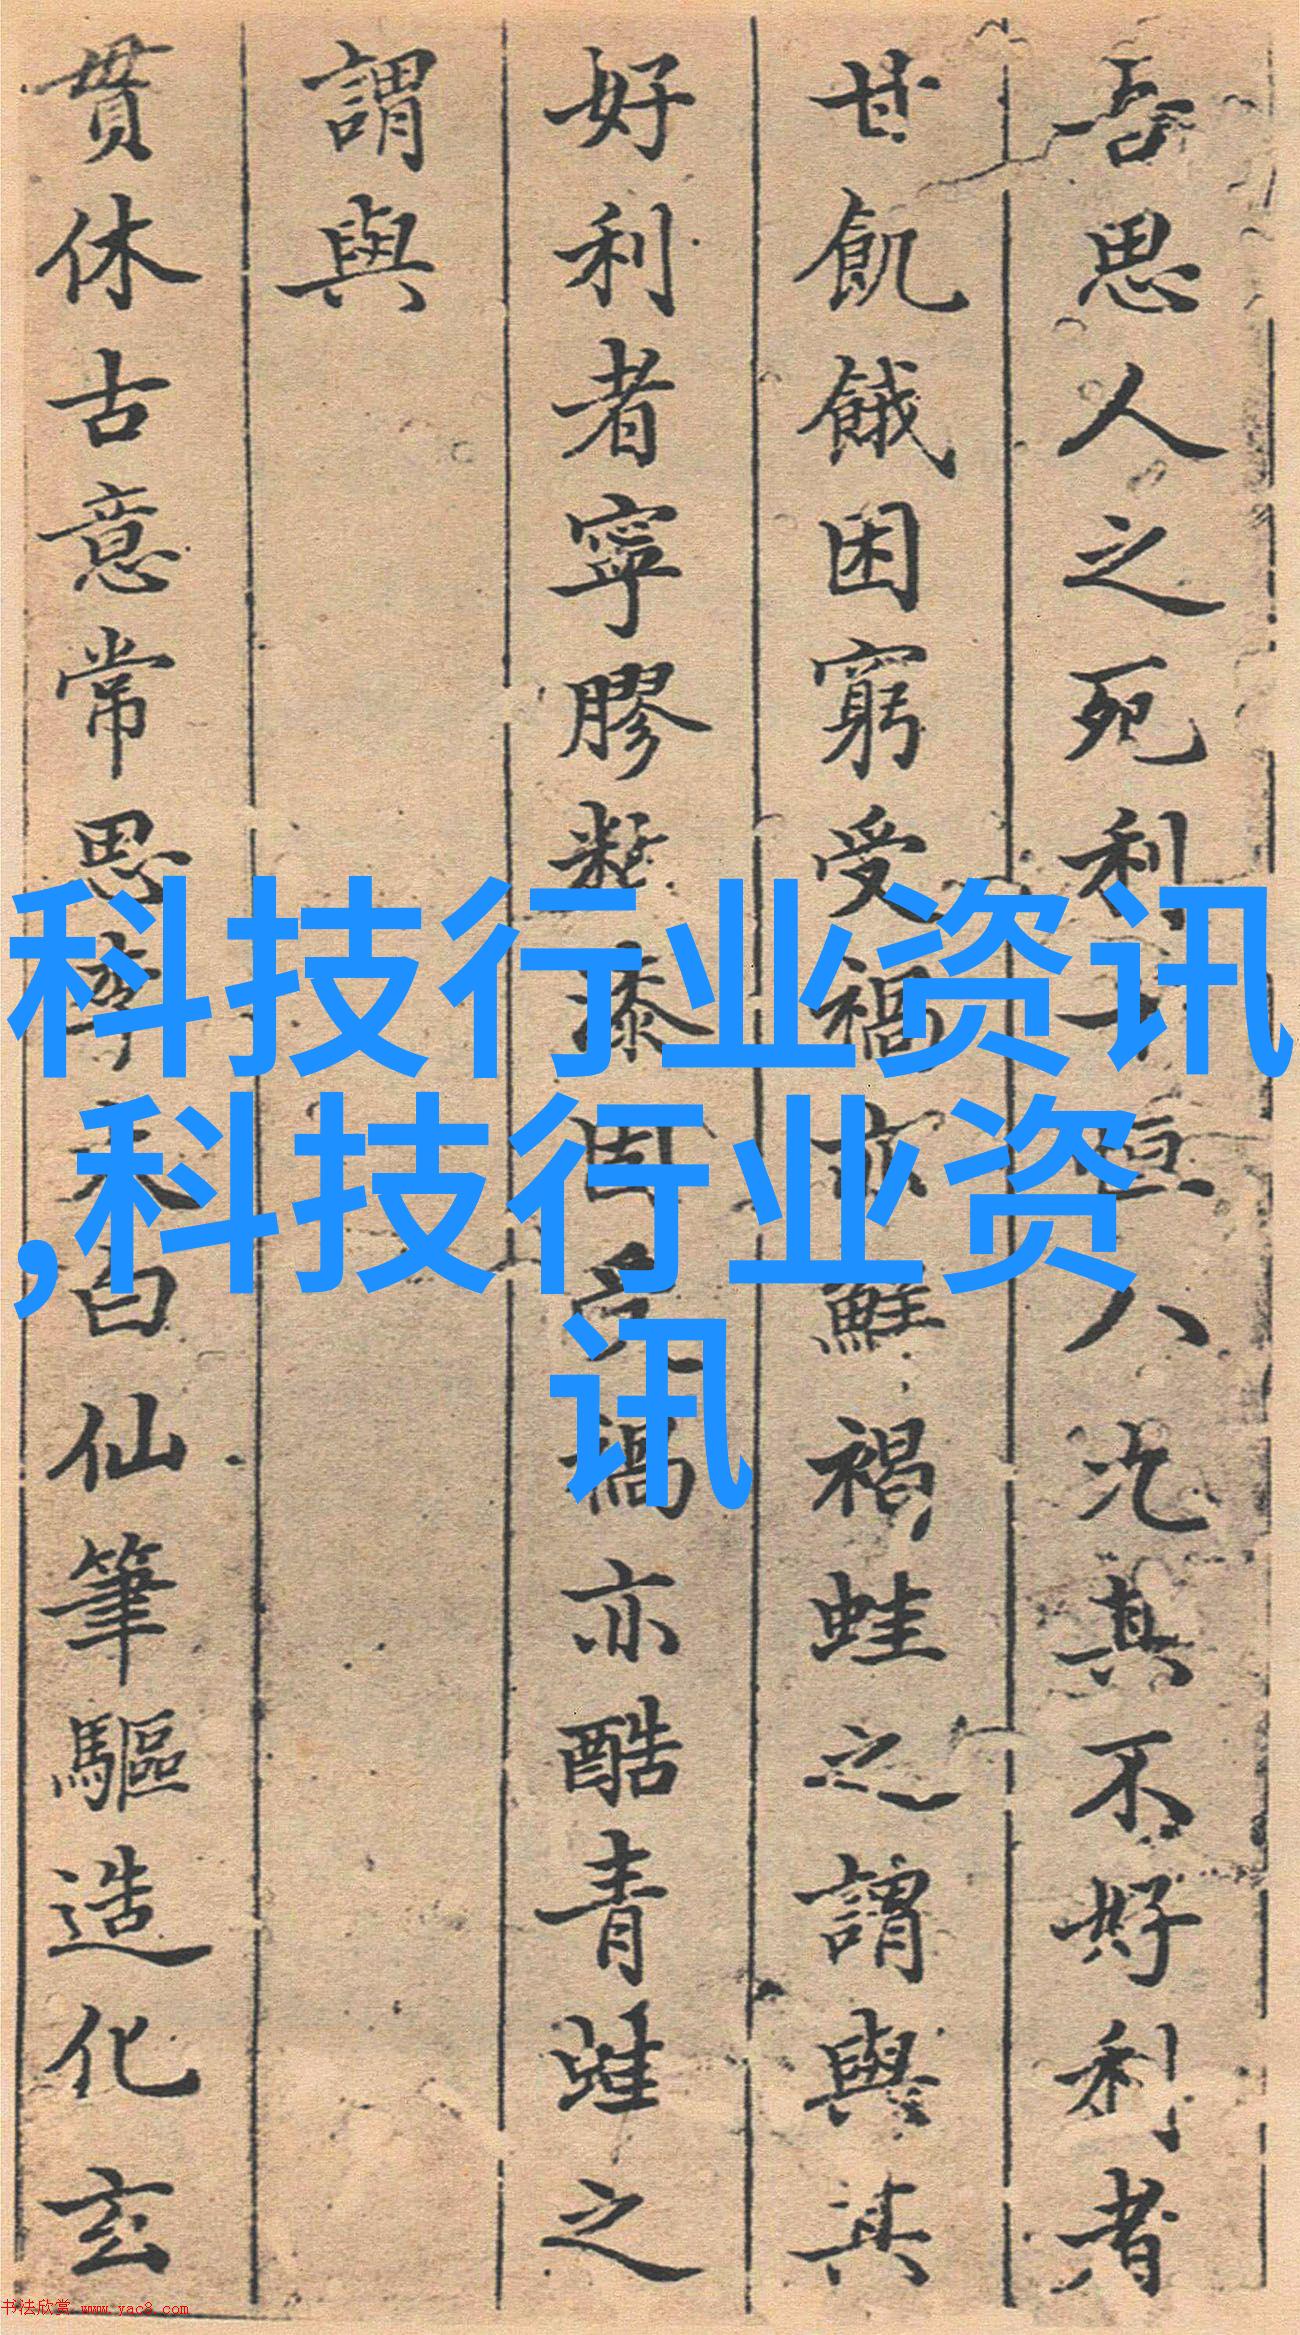 吾思人之死利十恒八九其不好利者
甘飢餓困窮受禍亦鮮禍蛙之謂與其
好利者寧膠黏漆固而禍亦酷青蛙之
謂與
貫休古意常思李太白仙筆驅造化玄
科技行业资讯
,科技行业资
讯
书法欣赏 www.yac8.com